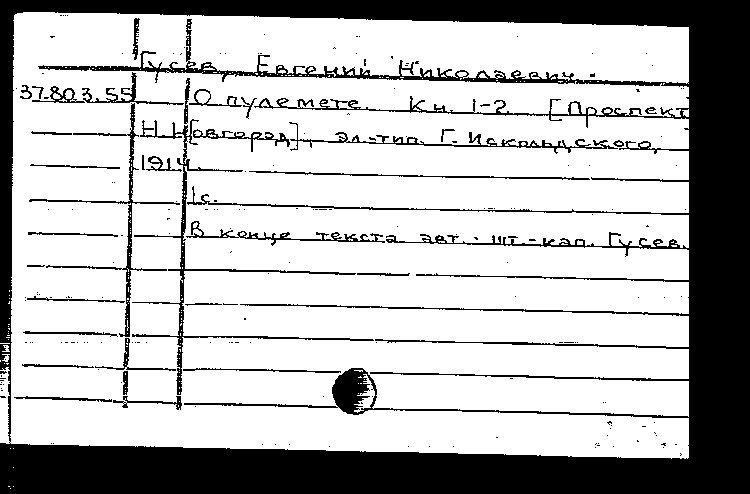 Гусев, Евгений Николаевич.
37.803.55 О пулемете. Кн. 1-2. [Проспект
Н. Н[овгород], эл.-тип. Г. Искольдского,
1914.
1с.
В конце текста авт.: шт.-кап. Гусев.